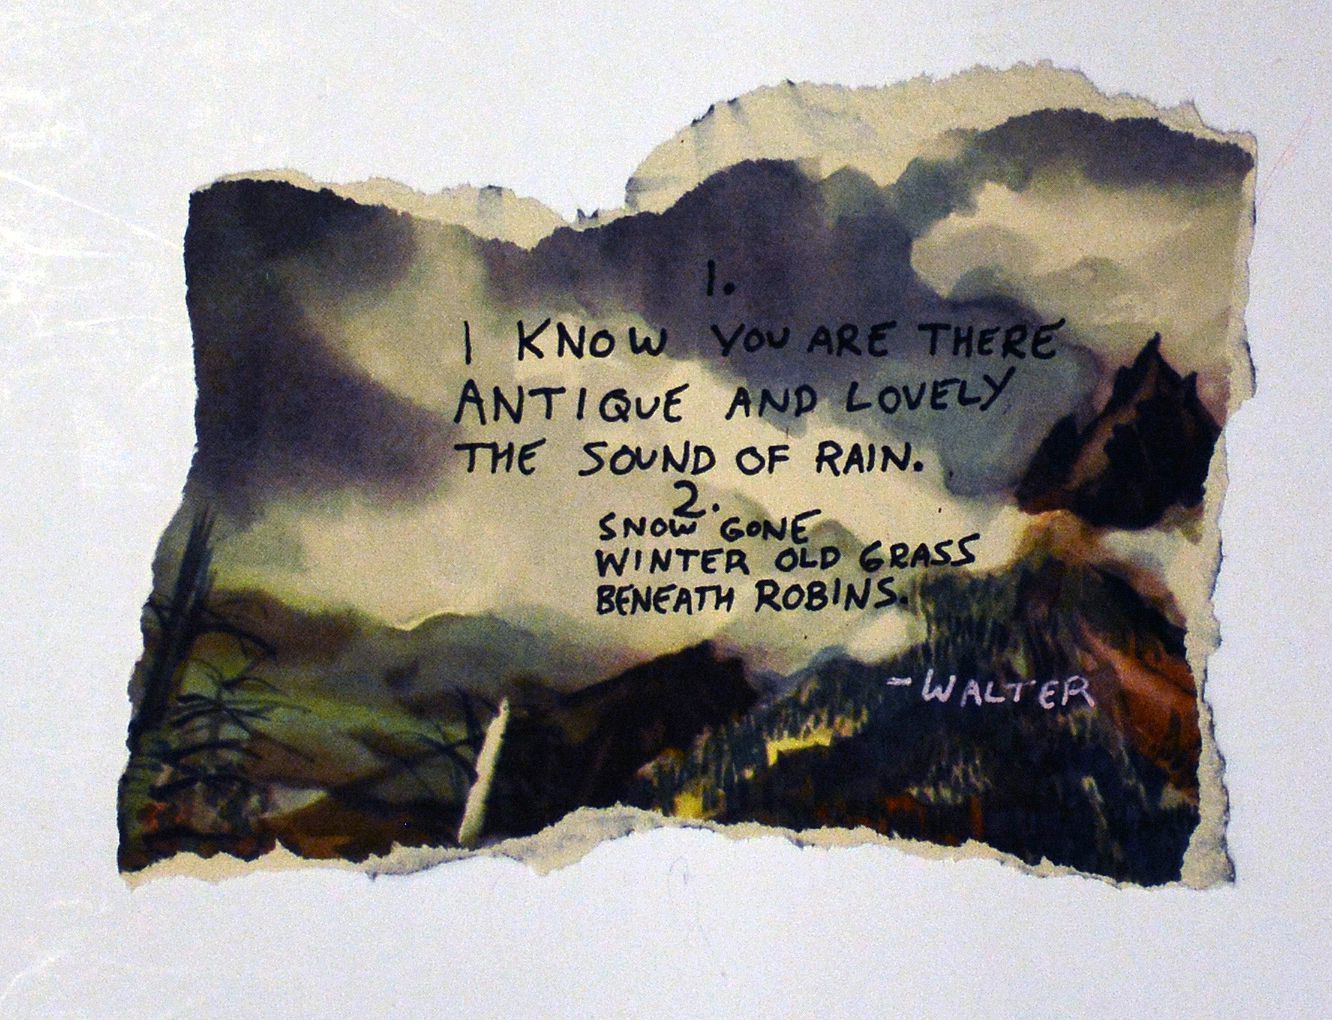 1.
I KNOW YOU ARE THERE
ANTIQUE AND LOVELY
THE SOUND OF RAIN.
2.
SNOW GONE
WINTER OLD GRASS
BENEATH ROBINS.
-WALTER